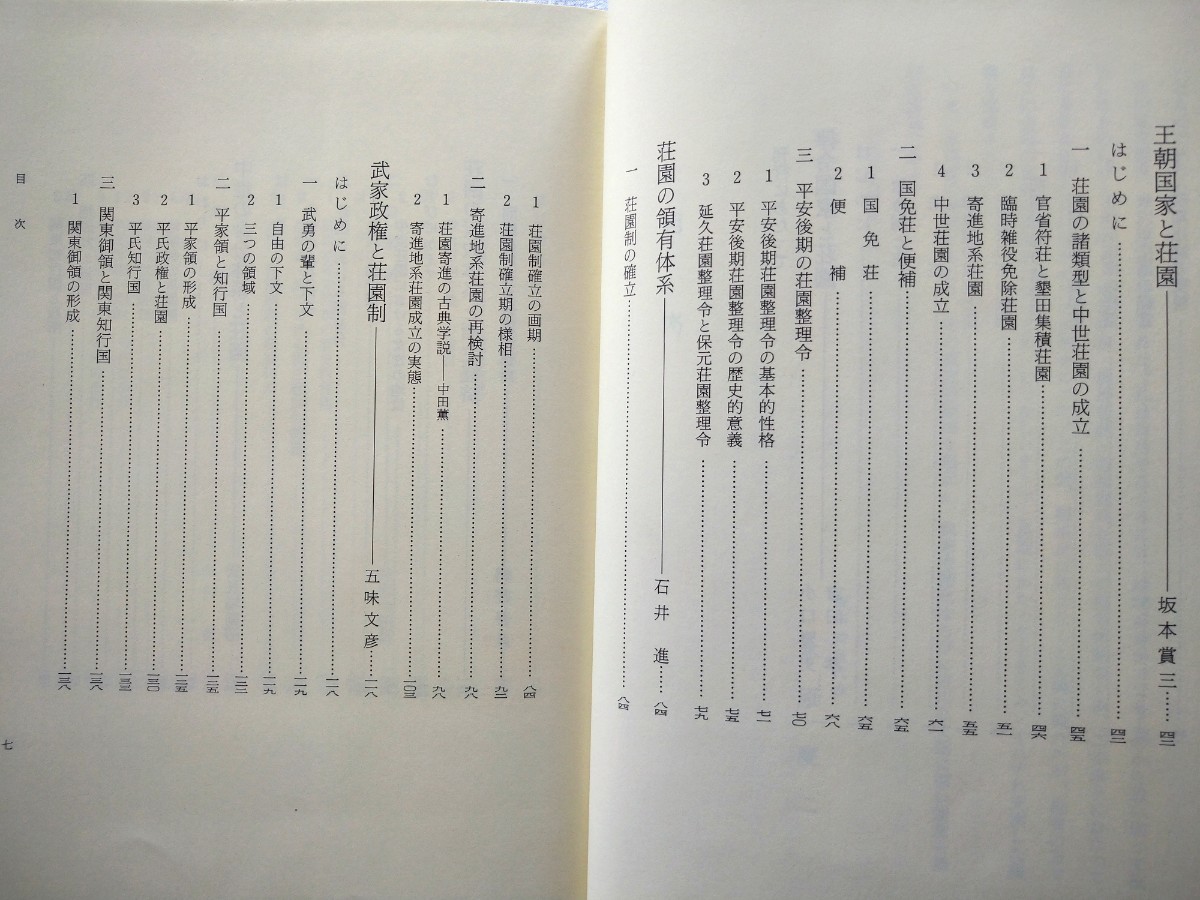 王朝国家と荘園――坂本賞三……四三
はじめに……四三
一 荘園の諸類型と中世荘園の成立……四五
1 官省符荘と墾田集積荘園……四六
2 臨時雑役免除荘園……五一
3 寄進地系荘園……五五
4 中世荘園の成立……六一
二 国免荘と便補……六五
1 国免荘……六五
2 便補……六八
三 平安後期の荘園整理令……七〇
1 平安後期荘園整理令の基本的性格……七一
2 平安後期荘園整理令の歴史的意義……七五
3 延久荘園整理令と保元荘園整理令……七九
荘園の領有体系――石井進……八四
一 荘園制の確立……八四
1 荘園制確立の画期……八四
2 荘園制確立期の様相……九二
二 寄進地系荘園の再検討……九八
1 荘園寄進の古典学説――中田薫……九八
2 寄進地系荘園成立の実態……一〇三
武家政権と荘園制――五味文彦……一一八
はじめに……一一八
一 武勇の輩と下文……一一九
1 自由の下文……一一九
2 三つの領域……一二三
二 平家領と知行国……一二五
1 平家領の形成……一二五
2 平氏政権と荘園……一三〇
3 平氏知行国……一三三
三 関東御領と関東知行国……一三八
1 関東御領の形成……一三八
目次
七